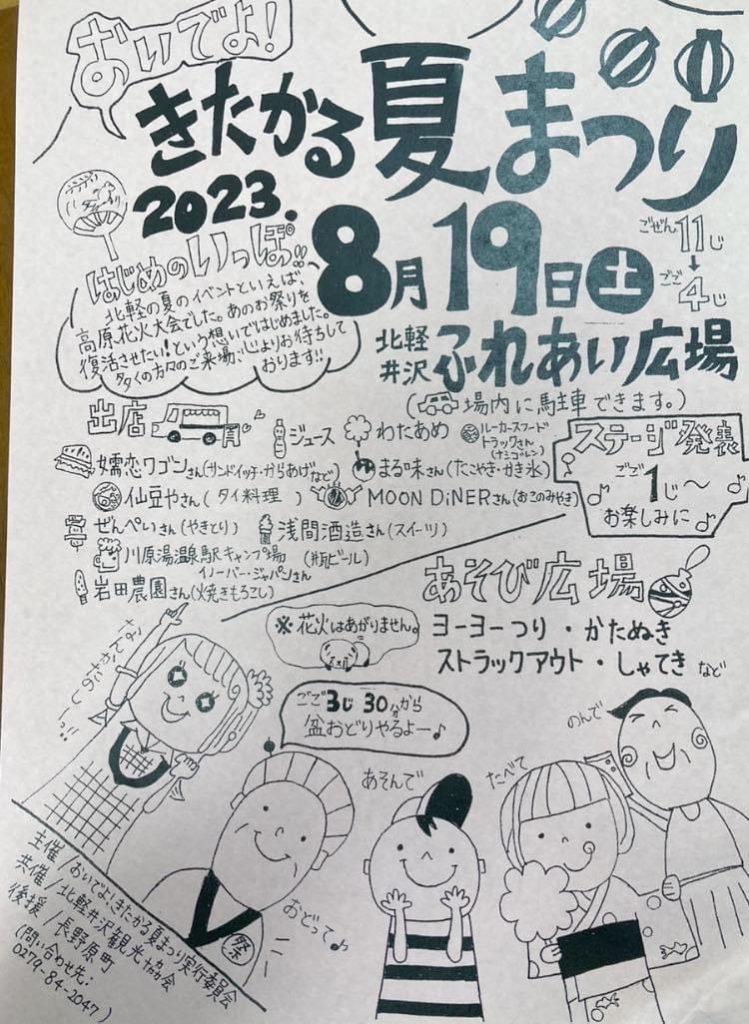 おいでよ!
きたかる夏まつり
2023.
8月19日土
ごぜん11じ
↓
ごご4じ
はじめのいっぽ!!
北軽の夏のイベントといえば、
高原花火大会でした。あのお祭りを
復活させたい!という想いではじめました。
多くの方々のご来場、心よりお待ちして
おります!!
北軽井沢ふれあい広場
(場内に駐車できます。)
出店
ジュース
わたあめ
ルーカースフード
トラックさん
(ナシゴレン)
嬬恋ワゴンさん(サンドイッチ・からあげなど)
まる味さん(たこやき・かき氷)
仙豆やさん(タイ料理)
MOON DiNERさん(おこのみやき)
ぜんぺいさん(やきとり)
浅間酒造さん(スイーツ)
川原湯温泉駅キャンプ場
イノーバー・ジャパンさん
(瓶ビール)
岩田農園さん(焼きもろこし)
ステージ発表
ごご1じ〜
お楽しみに
あそび広場
ヨーヨーつり・かたぬき
ストラックアウト・しゃてきなど
※花火はあがりません。
ごご3じ30分から
盆おどりやるよー♪
あそんで
たべて
のんで
おどって♪
祭
主催/おいでよ!きたかる夏まつり実行委員会
共催/北軽井沢観光協会
後援/長野原町
(問い合わせ先:
0279-84-2047)